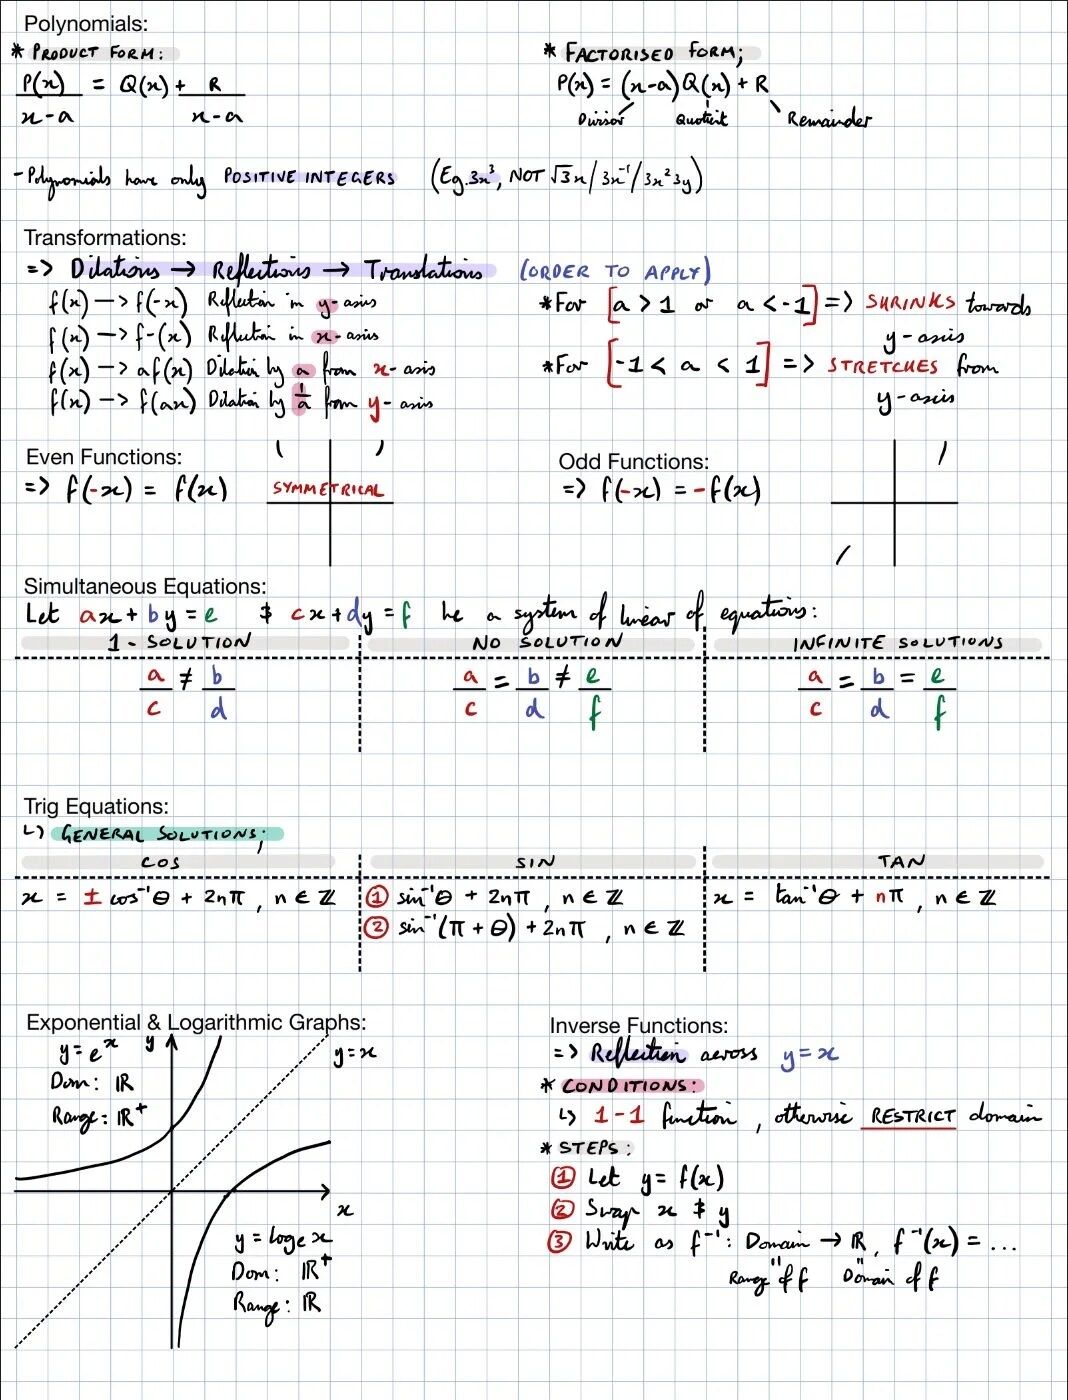 Polynomials:
* PRODUCT FORM:
P(x)/(x-a) = Q(x) + R/(x-a)
* FACTORISED FORM;
P(x) = (x-a)Q(x) + R
Divisor Quotient Remainder
- Polynomials have only POSITIVE INTEGERS (Eg. 3x³, NOT √3x/3x⁻¹/3x²3y)
Transformations:
=> Dilations → Reflections → Translations (ORDER TO APPLY)
f(x) —> f(-x) Reflection in y-axis
f(x) —> f-(x) Reflection in x-axis
f(x) —> af(x) Dilation by a from x-axis
f(x) —> f(ax) Dilation by 1/a from y-axis
*For [a > 1 or a < -1] => SHRINKS towards
y-axis
*For [-1 < a < 1] => STRETCHES from
y-axis
Even Functions:
=> f(-x) = f(x)
SYMMETRICAL
Odd Functions:
=> f(-x) = -f(x)
Simultaneous Equations:
Let ax + by = e & cx + dy = f be a system of linear of equations:
1 - SOLUTION
a/c ≠ b/d
NO SOLUTION
a/c = b/d ≠ e/f
INFINITE SOLUTIONS
a/c = b/d = e/f
Trig Equations:
↳ GENERAL SOLUTIONS;
COS
x = ± cos⁻¹θ + 2nπ, n ∈ ℤ
SIN
① sin⁻¹θ + 2nπ, n ∈ ℤ
② sin⁻¹(π + θ) + 2nπ, n ∈ ℤ
TAN
x = tan⁻¹θ + nπ, n ∈ ℤ
Exponential & Logarithmic Graphs:
y = eˣ
Dom: ℝ
Range: ℝ⁺
y
y = x
x
y = logₑx
Dom: ℝ⁺
Range: ℝ
Inverse Functions:
=> Reflection across y = x
* CONDITIONS:
↳ 1-1 function, otherwise RESTRICT domain
* STEPS:
① Let y = f(x)
② Swap x & y
③ Write as f⁻¹: Domain → ℝ, f⁻¹(x) = ...
" "
Range of f Domain of f